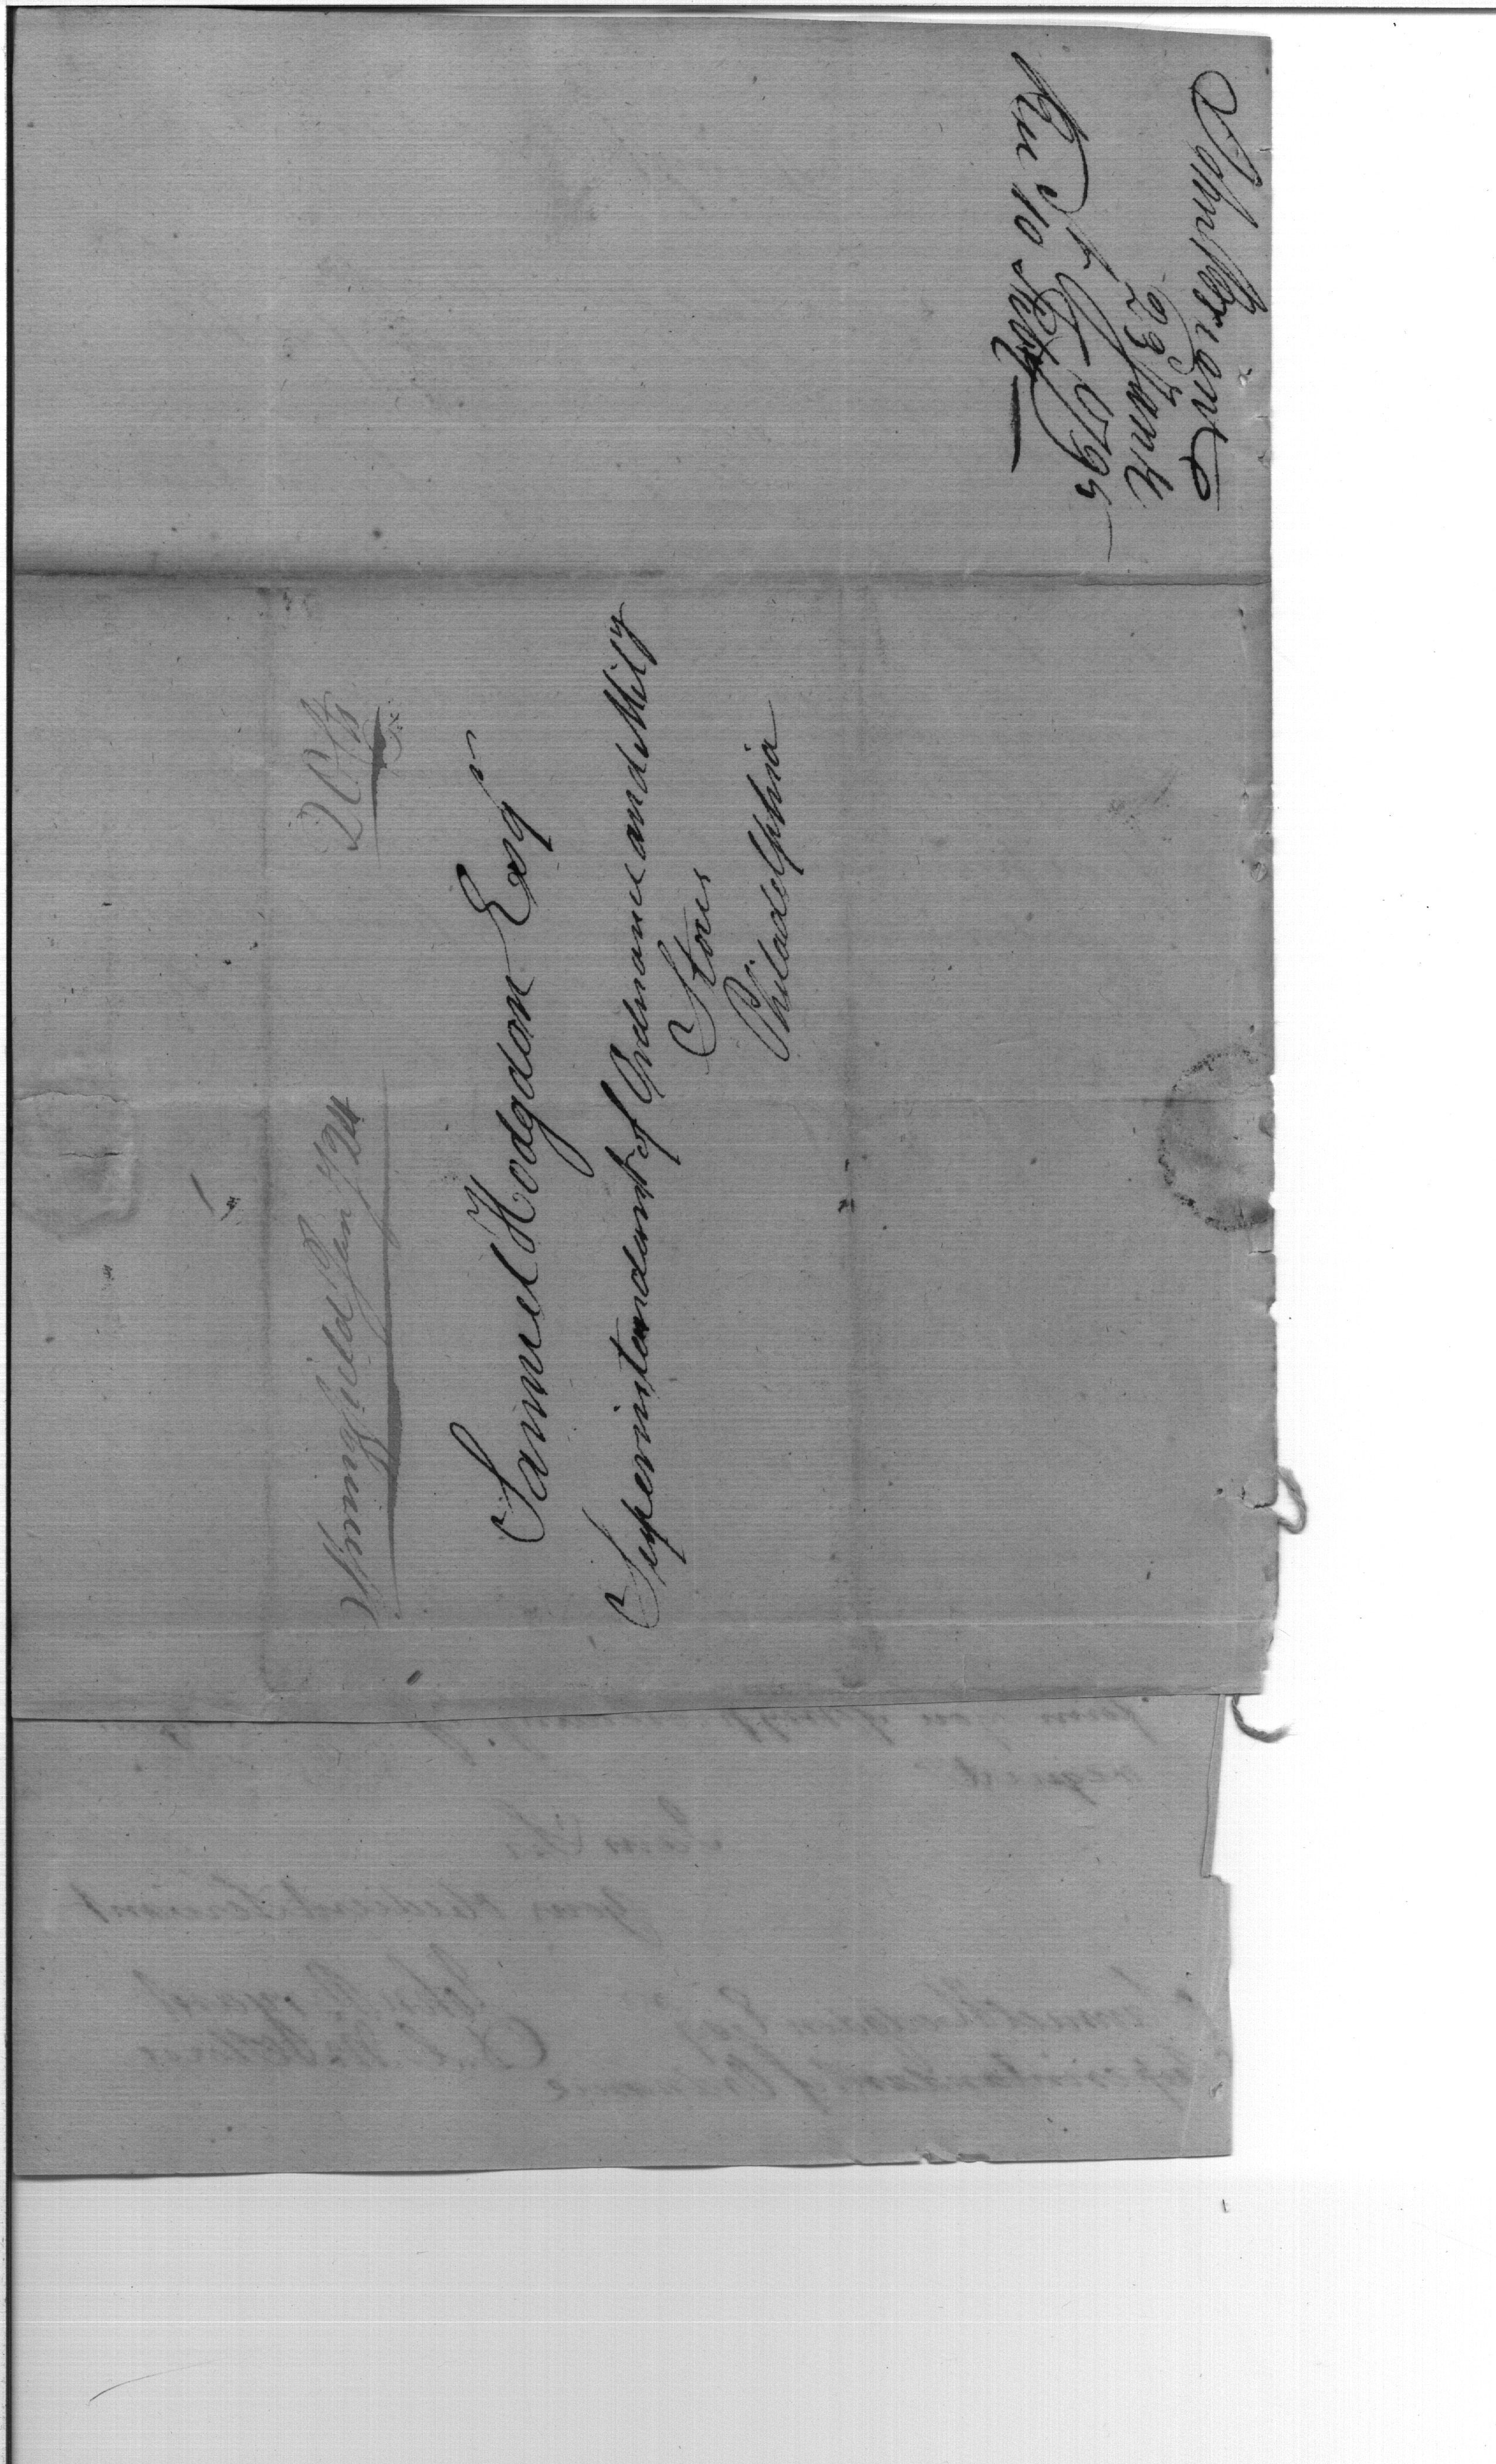 Springfield Jany 24
20 Cts
Samuel Hodgdon Esqr
Superintendant of Ordnance and Mily
Stores
Philadelphia
John Bryant
23 Jany
1795
10 Feby
request
I am Sir
your obedient Servant
John Bryant
Samuel Hodgdon Esq
Superintendant of Ordnance